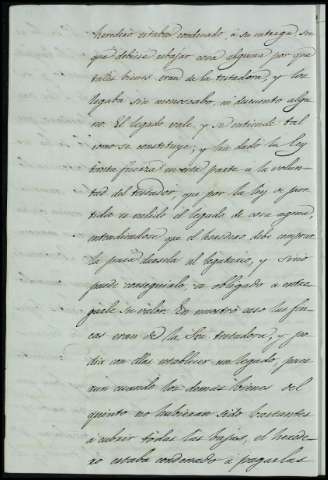 heredero estaba condenado, a su entrega sin
que debiese rebajar cosa alguna por que
tales bienes eran de la testadora, y los
legaba sin menoscabo, ni descuento algu
no. El legado vale, y se entiende tal
como se constituye; y ha dado la Ley
tanta fuerza en esta parte a la volun
tad del testador que por la ley de par
tida es valido el legado de cosa agena,
entendiendose que el heredero debe comprar
la para darsela al legatario, y sino
puede conseguirla, es obligado a entre
garle su valor. En nuestro caso las fin
cas eran de la Sra testadora, y po
dia con ellas establecer un legado, pues
aun cuando los demas bienes del
quinto no hubieran sido bastantes
a cubrir todas las bajas, el herede
ro estaba condenado a pagarlas